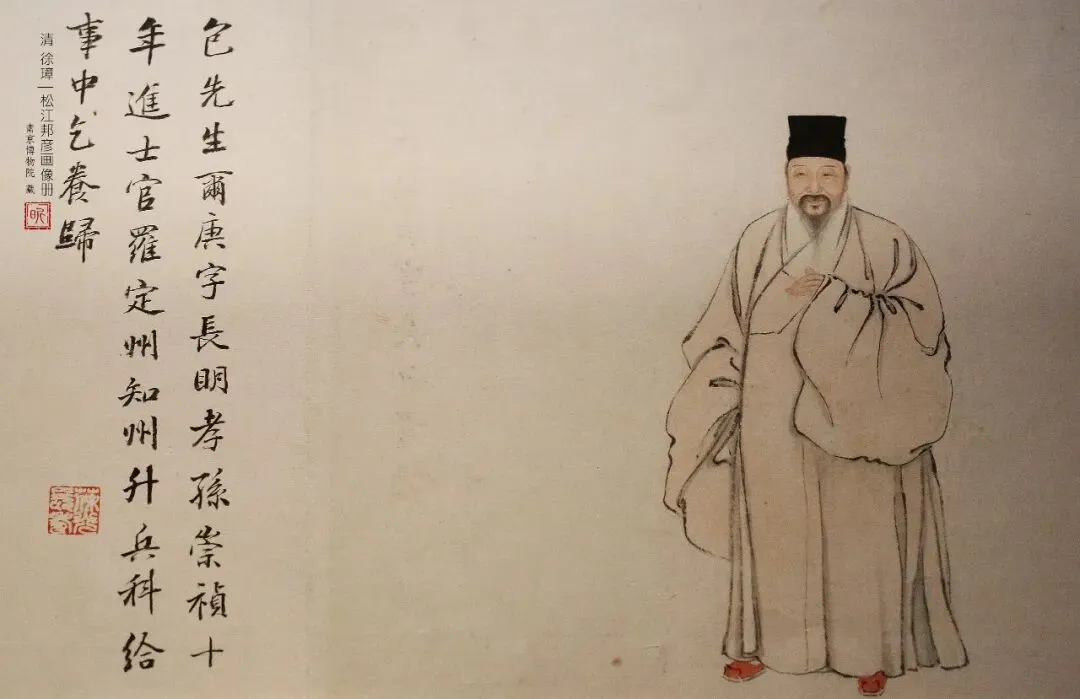 包先生爾庚字長明孝孫崇禎十
年進士官羅定州知州升兵科給
事中乞養歸
清 徐璋|松江邦彦画像册
南京博物院 藏